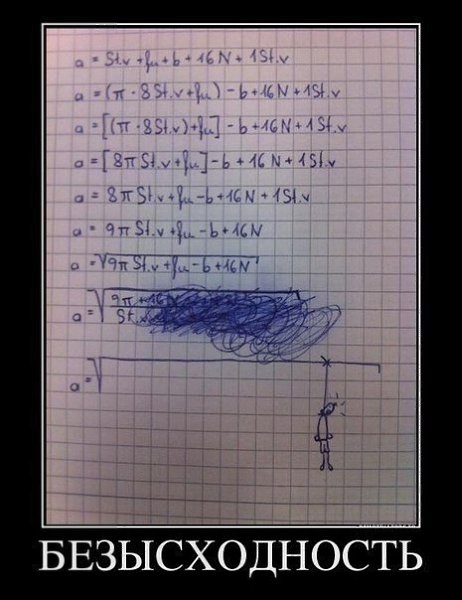 a = St.v + fu + b + 16N + 1St.v
a = (π · 8St.v + fu) - b + 16N + 1St.v
a = [(π · 8St.v) + fu] - b + 16N + 1St.v
a = [8πSt.v + fu] - b + 16N + 1St.v
a = 8πSt.v + fu - b + 16N + 1St.v
a = 9πSt.v + fu - b + 16N
a = √9πSt.v + fu - b + 16N
a = √9π + 16
St.
a = √
БЕЗЫСХОДНОСТЬ